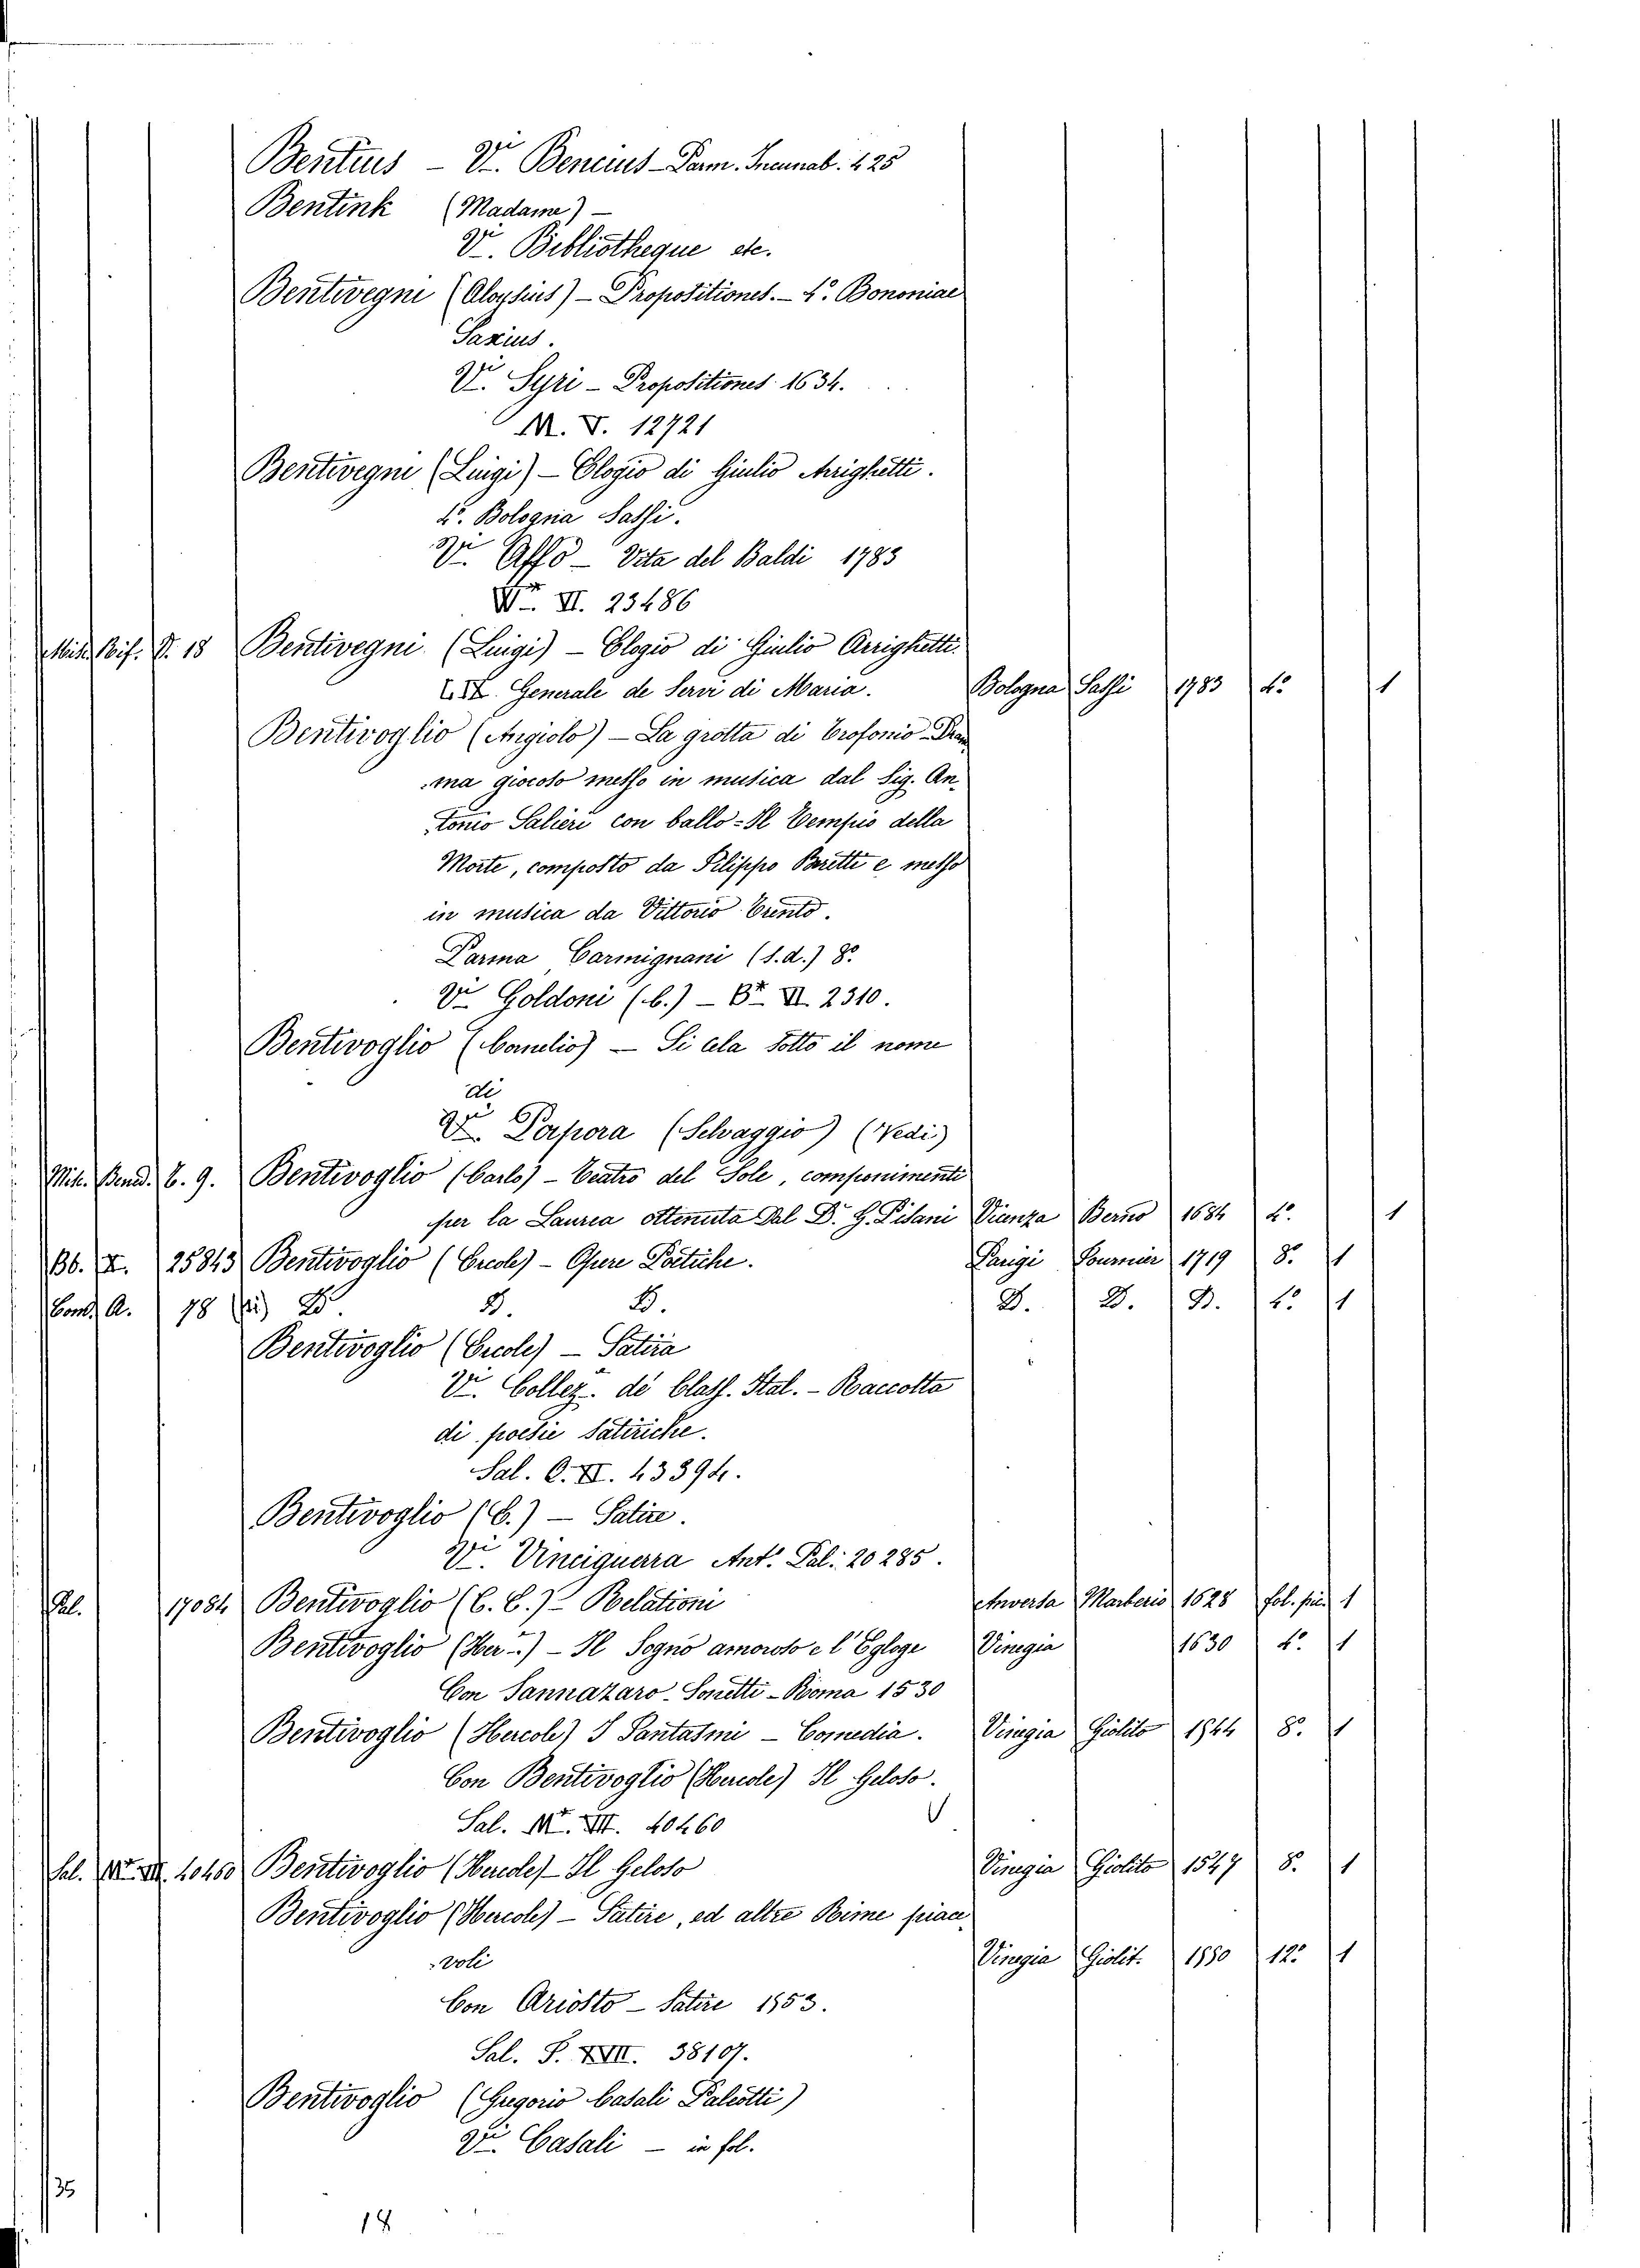 Bentius – Vi. Bencius – Parm. Incunab. 425
Bentink (Madame) –
Vi. Bibliotheque etc.
Bentivegni (Aloysius) – Propositiones. – 4.º Bononiae
Saxius.
Vi. Syri – Propositiones 1634.
M. V. 12721
Bentivegni (Luigi) – Elogio di Giulio Arrighetti.
4.º Bologna Sassi.
Vi. Affò – Vita del Baldi 1783
VI. 23486
Misc. V. 18 Bentivegni (Luigi) – Elogio di Giulio Arrighetti.
Generale de Servi di Maria. Bologna Sassi 1783 4.º 1
Bentivoglio (Angiolo) – La grotta di Trofonio – Dram
ma giocoso messo in musica dal Sig. An
tonio Salieri con ballo = Il Tempio della
Morte, composto da Filippo Beretti e messo
in musica da Vittorio Trento.
Parma, Carmignani (s.d.) 8.º
Vi. Goldoni (C.) – VI. 2310.
Bentivoglio (Cornelio) – Si cela sotto il nome
di
Vi. Porpora (Selvaggio) (Vedi)
Misc. Bened. C. 9. Bentivoglio (Carlo) – Teatro del Sole, componimenti
per la Laurea ottenuta dal D.r G. Pisani Vicenza Berno 1684 4.º 1
Bb. X. 25843 Bentivoglio (Ercole) – Opere Poetiche. Parigi Fournier 1719 8.º 1
Cond. A. 78 D. D. D. D. D. D. 4.º 1
Bentivoglio (Ercole) – Satira
Vi. Collez. de Class. Ital. – Raccolta
di poesie satiriche.
Sal. C. VI. 43394.
Bentivoglio (E.) – Satire.
Vi. Vinciguerra Ant.º Pal. 20285.
Pal. 17084 Bentivoglio (C. G.) – Relationi Anversa Marberio 1628 fol. pic. 1
Bentivoglio (Her..) – Il Sogno amoroso e l'Egloge Vinegia 1530 4.º 1
Con Sannazaro – Sonetti – Roma 1530
Bentivoglio (Hercole) I Fantasmi – Comedia. Vinegia Giolito 1544 8.º 1
Con Bentivoglio (Hercole) Il Geloso.
Sal. M. VII. 40460
Sal. M. VII. 40460 Bentivoglio (Hercole) – Il Geloso Vinegia Giolito 1547 8.º 1
Bentivoglio (Hercole) – Satire, ed altre Rime piace
voli Vinegia Giolit. 1550 12.º 1
Con Ariosto – Satire 1553.
Sal. P. XVII. 38107.
Bentivoglio (Gregorio Casali Paleotti)
Vi. Casali – in fol.
35
18